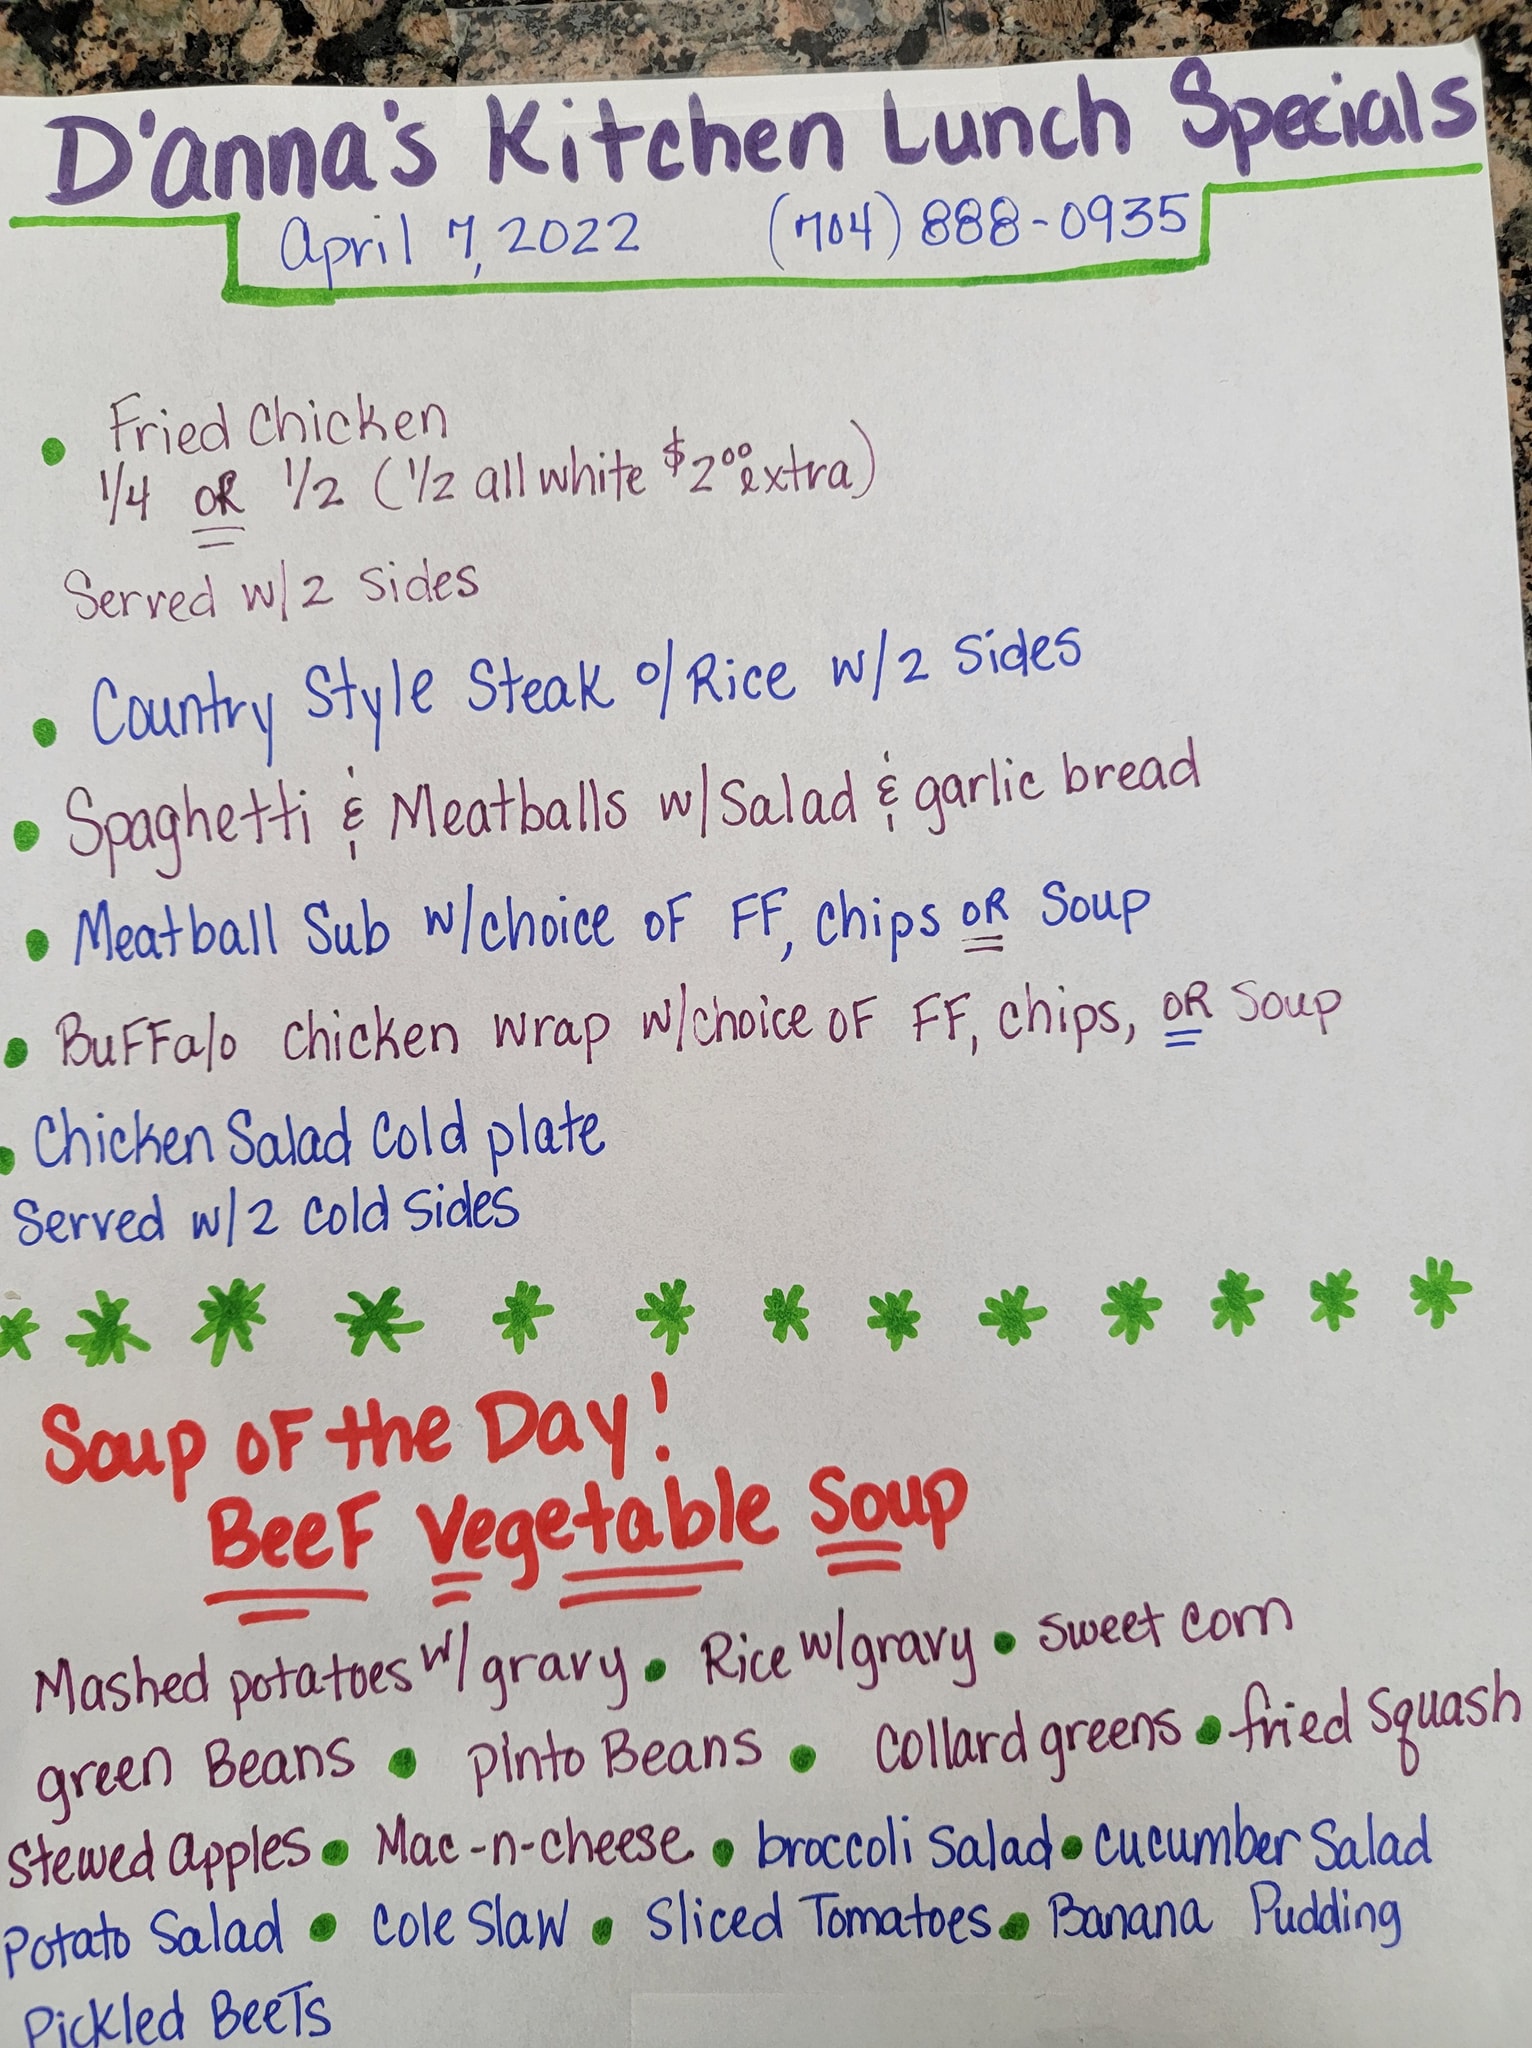 D'anna's Kitchen Lunch Specials
April 7, 2022 (704) 888-0935
• Fried Chicken
1/4 OR 1/2 (1/2 all white $2.00 extra)
Served w/2 sides
• Country Style Steak o/Rice w/2 sides
• Spaghetti & Meatballs w/Salad & garlic bread
• Meatball Sub w/choice of FF, chips OR Soup
• Buffalo chicken wrap w/choice of FF, chips, OR Soup
• Chicken Salad Cold plate
Served w/2 cold sides
Soup of the Day!
Beef Vegetable Soup
Mashed potatoes w/gravy • Rice w/gravy • sweet corn
green Beans • pinto Beans • collard greens • fried squash
stewed apples • Mac-n-cheese • broccoli Salad • cucumber Salad
Potato Salad • Cole Slaw • Sliced Tomatoes • Banana Pudding
Pickled Beets